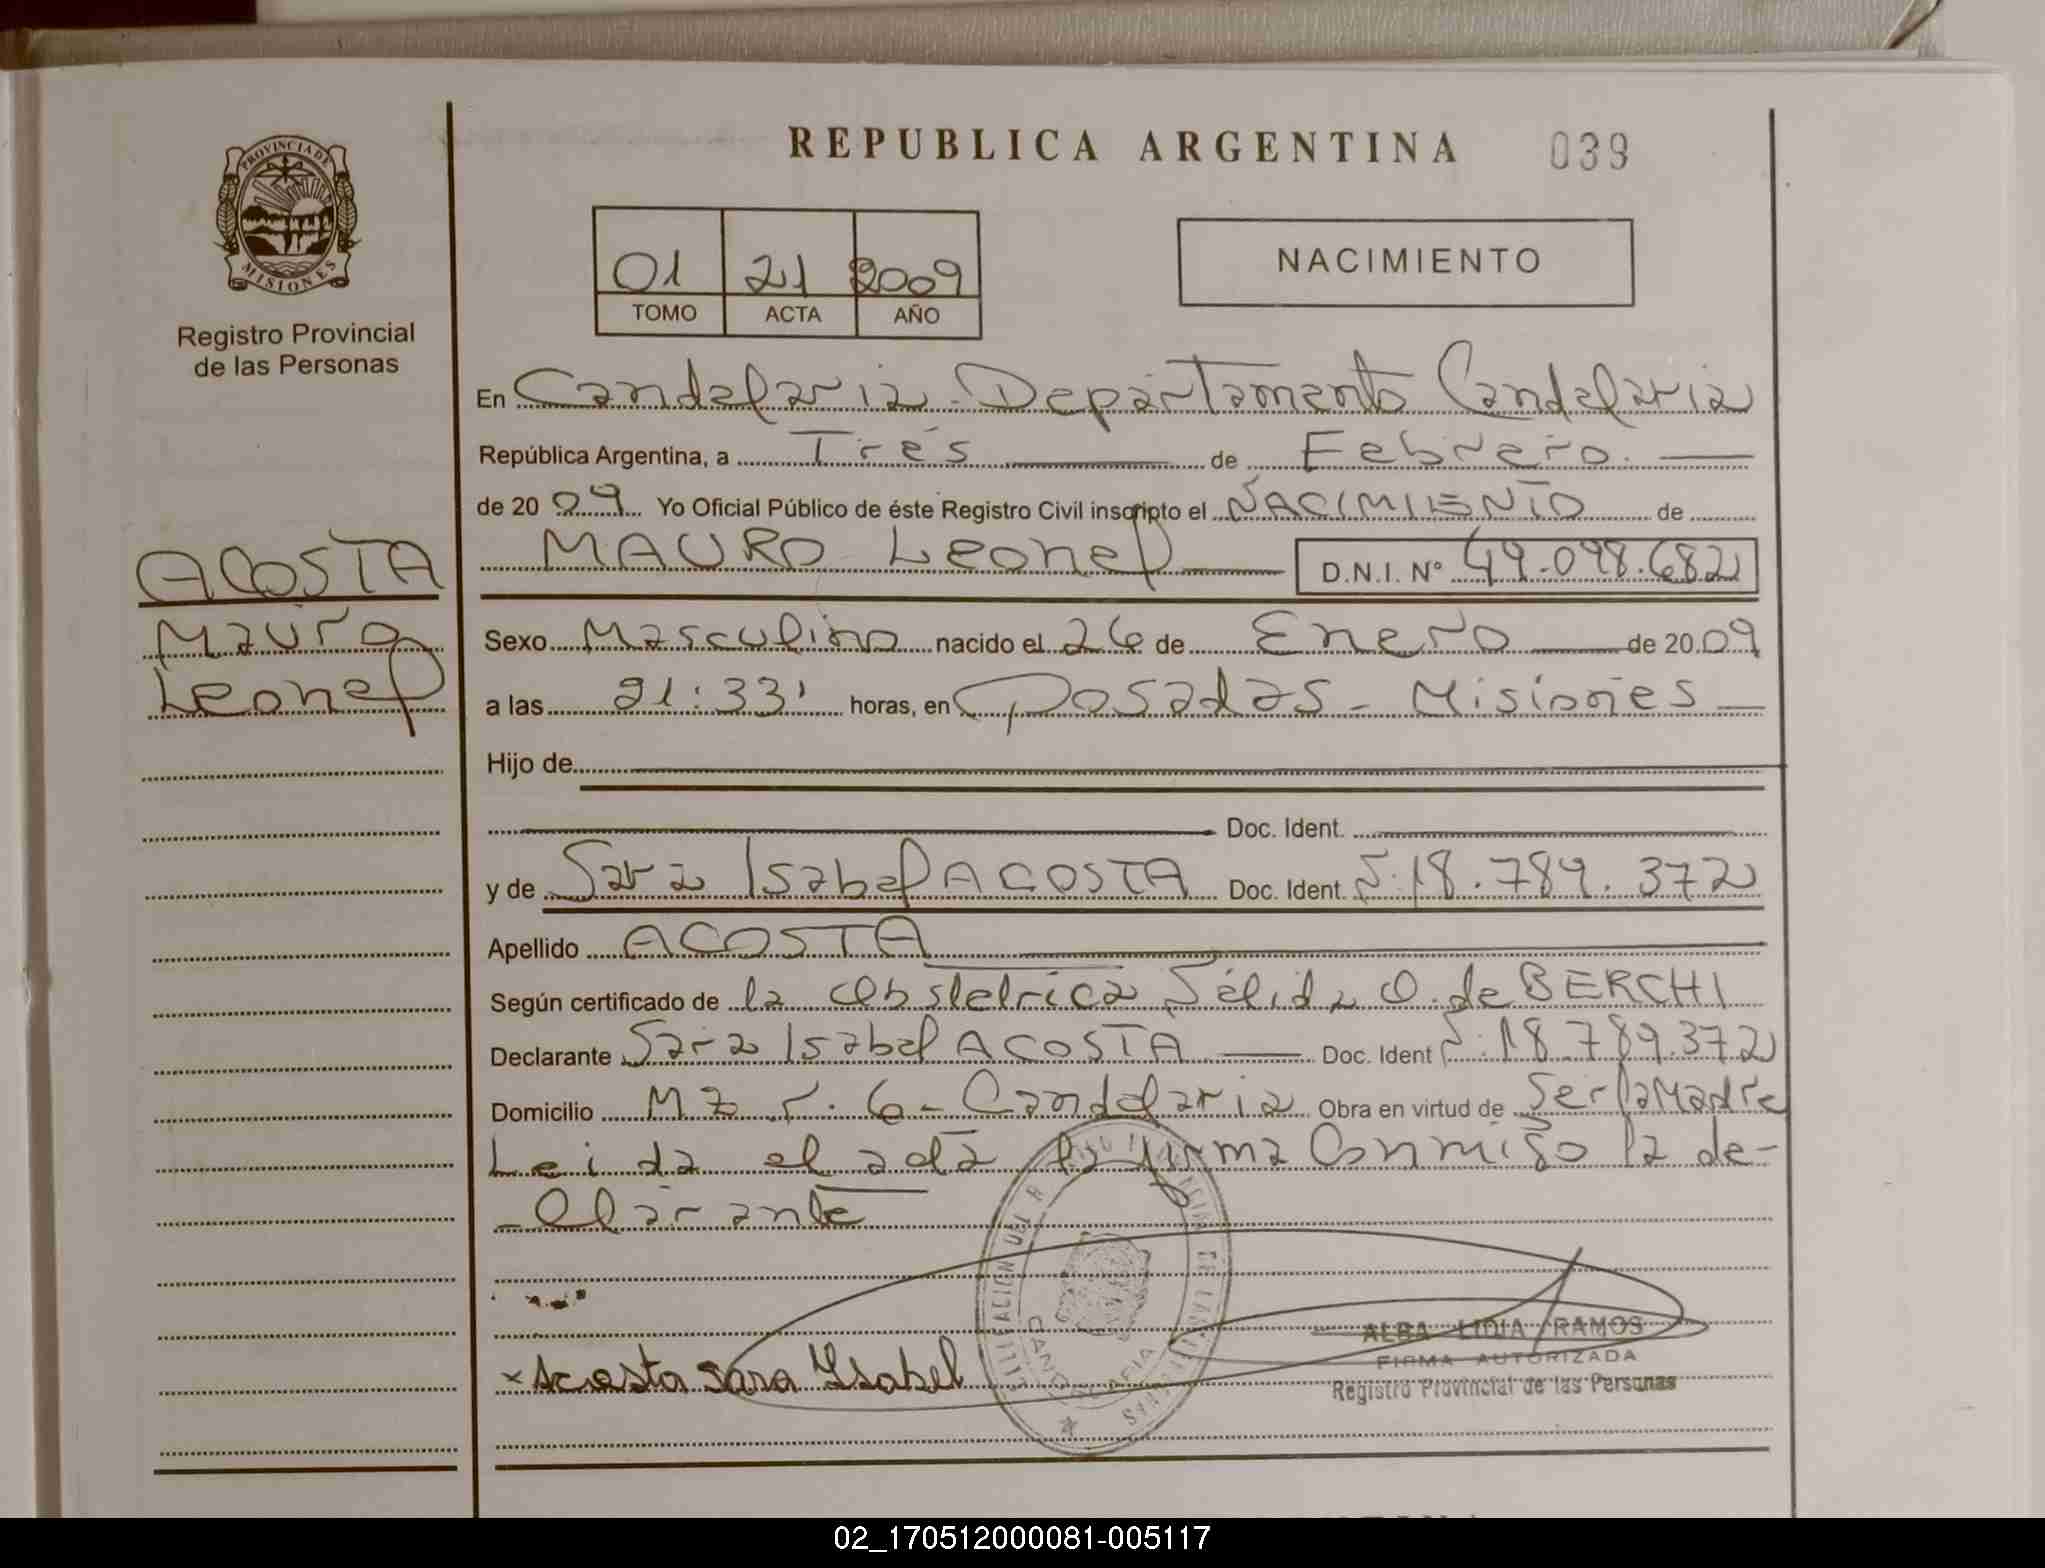 REPUBLICA ARGENTINA 039
PROVINCIA DE
MISIONES
Registro Provincial
de las Personas
01 21 2009
TOMO ACTA AÑO
NACIMIENTO
En Candelaria - Departamento Candelaria
República Argentina, a Tres de Febrero.
de 20 09 Yo Oficial Público de éste Registro Civil inscripto el NACIMIENTO de
MAURO Leonel D.N.I. Nº 49.098.682
ACOSTA
Mauro
Leonel
Sexo Masculino nacido el 26 de Enero de 20 09
a las 21:33' horas, en Posadas - Misiones
Hijo de
Doc. Ident.
y de Sara Isabel ACOSTA Doc. Ident. 18.789.372
Apellido ACOSTA
Según certificado de la Obstetrica Nélida O. de BERCHI
Declarante Sara Isabel ACOSTA Doc. Ident 18.789.372
Domicilio Mz 6 - Candelaria Obra en virtud de Ser la Madre
Leida el acta la firma Conmigo la de-
-clarante
x Acosta Sara Ysabel
ALBA LIDIA RAMOS
FIRMA AUTORIZADA
Registro Provincial de las Personas
CANDELARIA
02_170512000081-005117